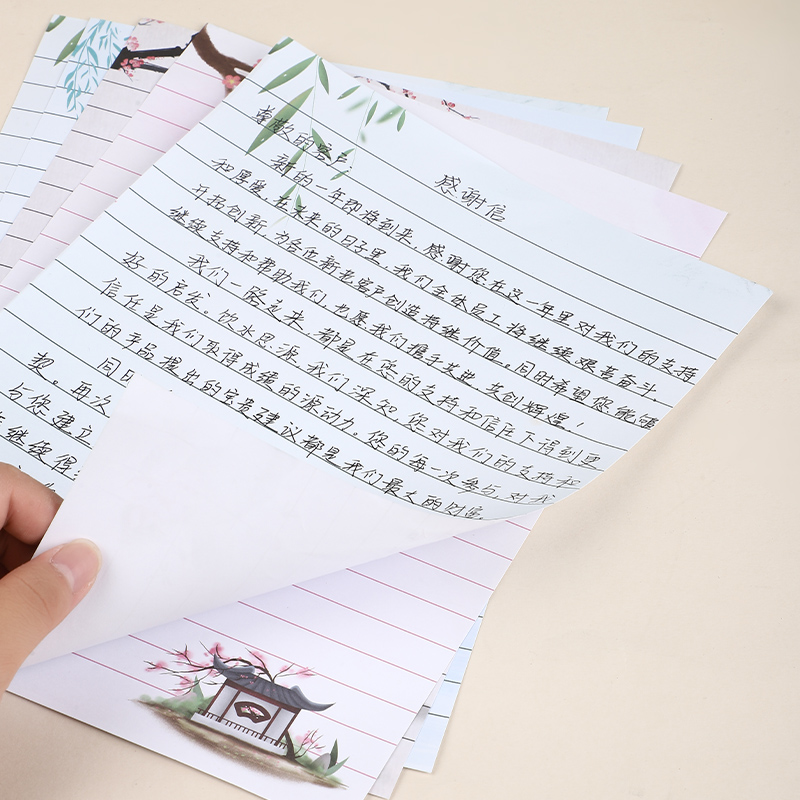 感谢信
尊敬的客户:
新的一年即将到来,感谢您在这一年里对我们的支持
和厚爱,在未来的日子里,我们全体员工将继续艰苦奋斗
开拓创新,为各位新老客户创造持继价值。同时希望您能够
继续支持和帮助我们,也愿我们携手共进,共创辉煌!
我们一路走来,都是在您的支持和信任下得到更
好的启发。饮水思源,我们深知,您对我们的支持和
信任是我们取得成绩的源动力。您的每一次参与,对我
们的产品提出的宝贵建议都是我们最大的财富
同日
契。再次
与您建立
继使得